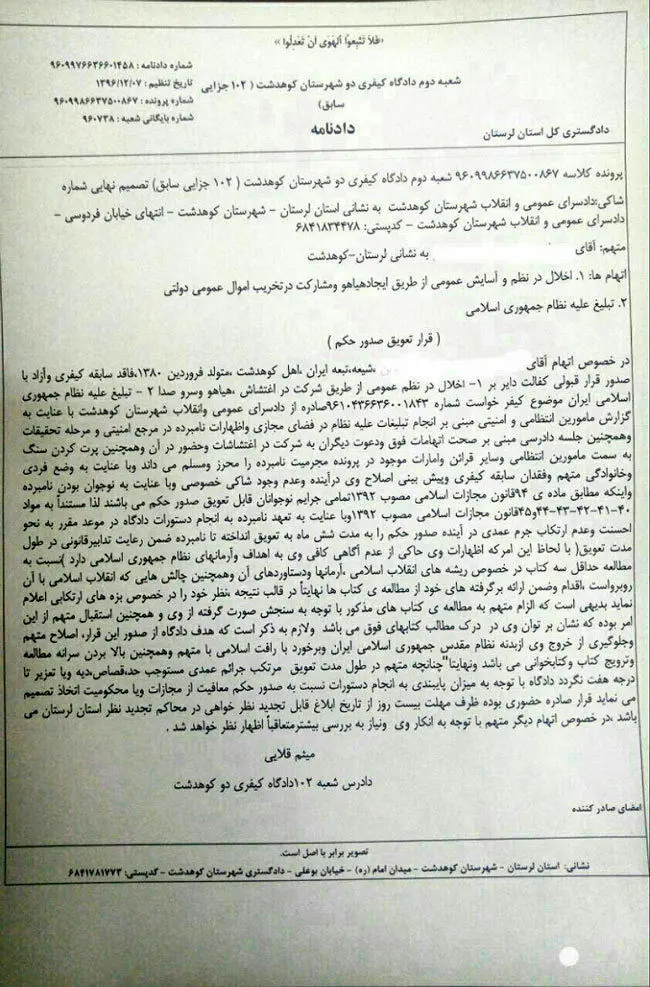 «فَلاَ تَتَّبِعُوا الْهَوَى أَنْ تَعْدِلُوا»
شماره دادنامه : ۹۶۰۹۹۷۶۶۳۶۶۰۱۴۵۸
تاریخ تنظیم : ۱۳۹۶/۱۲/۰۷
شماره پرونده : ۹۶۰۹۹۸۶۶۳۷۵۰۰۸۶۷
شماره بایگانی شعبه : ۹۶۰۷۳۸
شعبه دوم دادگاه کیفری دو شهرستان کوهدشت ( ۱۰۲ جزایی
سابق)
دادنامه
دادگستری کل استان لرستان
پرونده کلاسه ۹۶۰۹۹۸۶۶۳۷۵۰۰۸۶۷ شعبه دوم دادگاه کیفری دو شهرستان کوهدشت ( ۱۰۲ جزایی سابق) تصمیم نهایی شماره
شاکی:دادسرای عمومی و انقلاب شهرستان کوهدشت به نشانی استان لرستان - شهرستان کوهدشت - انتهای خیابان فردوسی -
دادسرای عمومی و انقلاب شهرستان کوهدشت - کدپستی: ۶۸۴۱۸۳۴۴۷۸
متهم: آقای به نشانی لرستان-کوهدشت
اتهام ها: ۱. اخلال در نظم و آسایش عمومی از طریق ایجادهیاهو ومشارکت درتخریب اموال عمومی دولتی
۲. تبلیغ علیه نظام جمهوری اسلامی
( قرار تعویق صدور حکم )
در خصوص اتهام آقای ،شیعه،تبعه ایران ،اهل کوهدشت ،متولد فروردین ۱۳۸۰،فاقد سابقه کیفری وآزاد با
صدور قرار قبولی کفالت دایر بر ۱- اخلال در نظم عمومی از طریق شرکت در اغتشاش ،هیاهو وسرو صدا ۲ - تبلیغ علیه نظام جمهوری
اسلامی ایران موضوع کیفر خواست شماره ۹۶۱۰۴۳۶۶۳۶۰۰۱۸۴۳صادره از دادسرای عمومی وانقلاب شهرستان کوهدشت با عنایت به
گزارش مامورین انتظامی و امنیتی مبنی بر انجام تبلیغات علیه نظام در فضای مجازی واظهارات نامبرده در مرجع امنیتی و مرحله تحقیقات
وهمچنین جلسه دادرسی مبنی بر صحت اتهامات فوق ودعوت دیگران به شرکت در اغتشاشات وحضور در آن وهمچنین پرت کردن سنگ
به سمت مامورین انتظامی وسایر قرائن وامارات موجود در پرونده مجرمیت نامبرده را محرز ومسلم می داند وبا عنایت به وضع فردی
وخانوادگی متهم وفقدان سابقه کیفری وپیش بینی اصلاح وی درآینده وعدم وجود شاکی خصوصی وبا عنایت به نوجوان بودن نامبرده
واینکه مطابق ماده ی ۹۴قانون مجازات اسلامی مصوب ۱۳۹۲تمامی جرایم نوجوانان قابل تعویق صدور حکم می باشند لذا مستنداً به مواد
۴۰-۴۱-۴۲-۴۳-۴۴و۴۵قانون مجازات اسلامی مصوب ۱۳۹۲وبا عنایت به تعهد نامبرده به انجام دستورات دادگاه در موعد مقرر به نحو
احسنت وعدم ارتکاب جرم عمدی در آینده صدور حکم را به مدت شش ماه به تعویق انداخته تا نامبرده ضمن رعایت تدابیرقانونی در طول
مدت تعویق( با لحاظ این امرکه اظهارات وی حاکی از عدم آگاهی کافی وی به اهداف وآرمانهای نظام جمهوری اسلامی دارد )نسبت به
مطالعه حداقل سه کتاب در خصوص ریشه های انقلاب اسلامی ،آرمانها ودستاوردهای آن وهمچنین چالش هایی که انقلاب اسلامی با آن
روبرواست ،اقدام وضمن ارائه برگرفته های خود از مطالعه ی کتاب ها نهایتاً در قالب نتیجه ،نظر خود را در خصوص بزه های ارتکابی اعلام
نماید بدیهی است که الزام متهم به مطالعه ی کتاب های مذکور با توجه به سنجش صورت گرفته از وی و همچنین استقبال متهم از این
امر بوده که نشان بر توان وی در درک مطالب کتابهای فوق می باشد ولازم به ذکر است که هدف دادگاه از صدور این قرار، اصلاح متهم
وجلوگیری از خروج وی ازبدنه نظام مقدس جمهوری اسلامی ایران وبرخورد با رافت اسلامی با متهم وهمچنین بالا بردن سرانه مطالعه
وترویج کتاب وکتابخوانی می باشد ونهایتا"چنانچه متهم در طول مدت تعویق مرتکب جرائم عمدی مستوجب حد،قصاص،دیه ویا تعزیر تا
درجه هفت نگردد دادگاه با توجه به میزان پایبندی به انجام دستورات نسبت به صدور حکم معافیت از مجازات ویا محکومیت اتخاذ تصمیم
می نماید قرار صادره حضوری بوده ظرف مهلت بیست روز از تاریخ ابلاغ قابل تجدید نظر خواهی در محاکم تجدید نظر استان لرستان می
باشد ،در خصوص اتهام دیگر متهم با توجه به انکار وی ونیاز به بررسی بیشترمتعاقباً اظهار نظر خواهد شد .
میثم قلایی
دادرس شعبه ۱۰۲دادگاه کیفری دو کوهدشت
امضای صادر کننده
تصویر برابر با اصل است.
نشانی: استان لرستان - شهرستان کوهدشت - میدان امام (ره) - خیابان بوعلی - دادگستری شهرستان کوهدشت - کدپستی: ۶۸۴۱۷۸۱۷۷۳